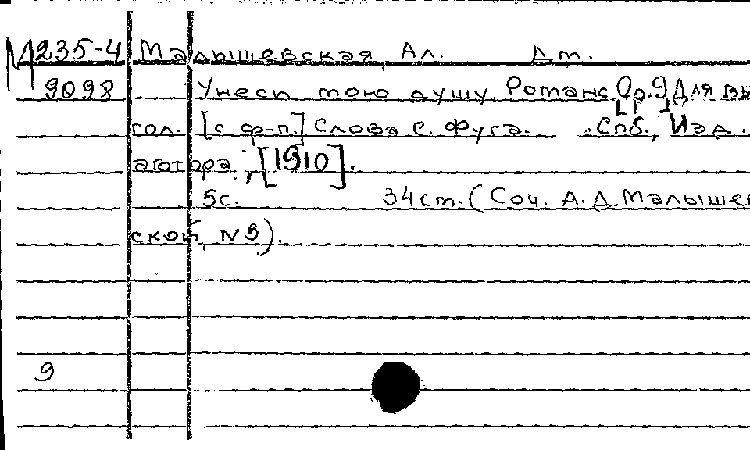 М 235-4 Малышевская, Ал. Дм.
9098 Унеси мою душу Романс. Ор. 9 Для
сол. [с ф-п.] Слова С. Фуга. Спб., Изд.
автора, [1910].
5с. 34см. (Соч. А. Д. Малышев
ской, №9).
9